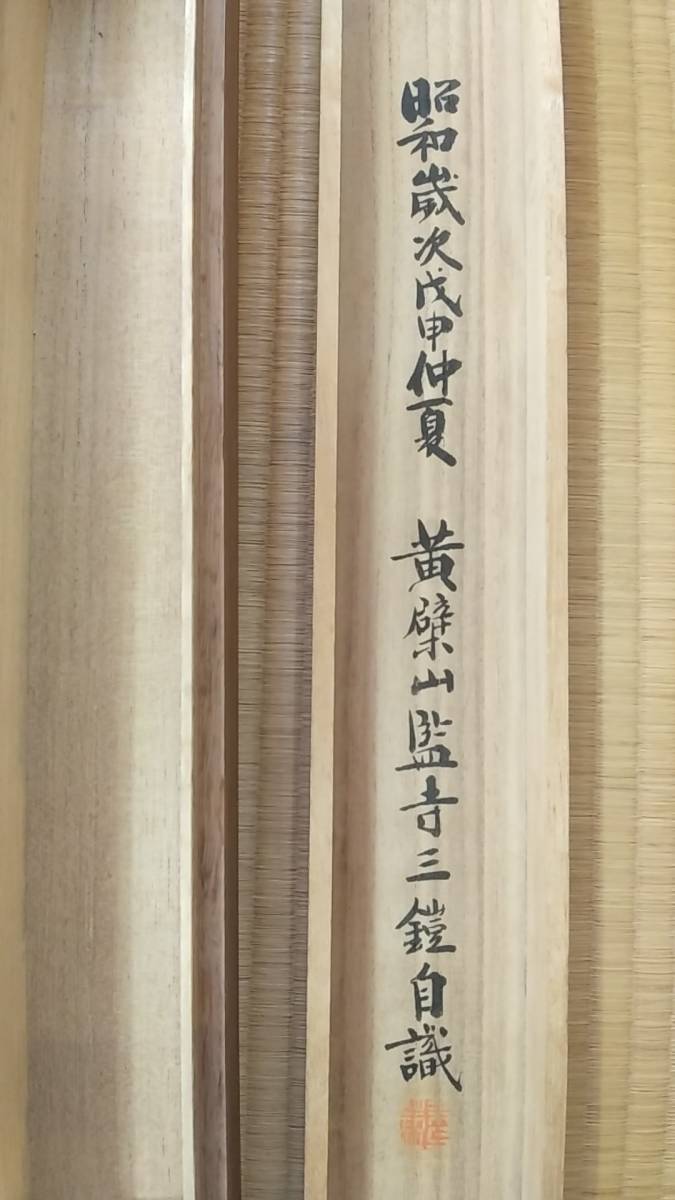 昭和歳次戊申仲夏 黄檗山監寺三鎧自識